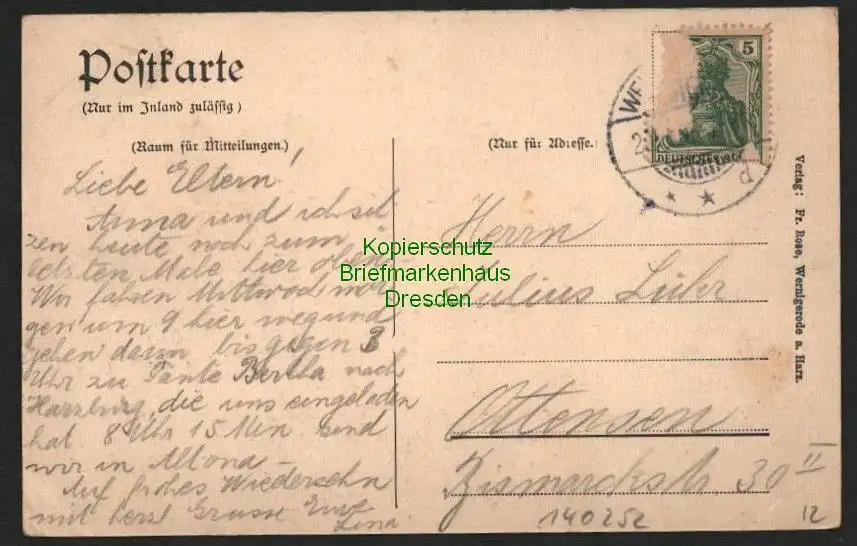 Postkarte
(Nur im Inland zulässig)
(Raum für Mitteilungen.)
(Nur für Adresse.)
5
DEUTSCHES
d
Verlag: Fr. Rose, Wernigerode a. Harz.
Liebe Eltern!
Anna und ich sit
zen heute noch zum
letzten Male hier oben.
Wir fahren Mittwoch mor
gen um 9 hier weg und
gehen dann bis gegen 3
Uhr zu Tante Bertha nach
Harzburg, die uns eingeladen
hat. 8 Uhr 15 Min. sind
wir in Altona.
Auf frohes Wiedersehn
mit herzl. Grusse Eure
Lina.
Herrn
Julius Lühr
Ottensen
Bismarckstr 30 II
140252
12
Kopierschutz
Briefmarkenhaus
Dresden